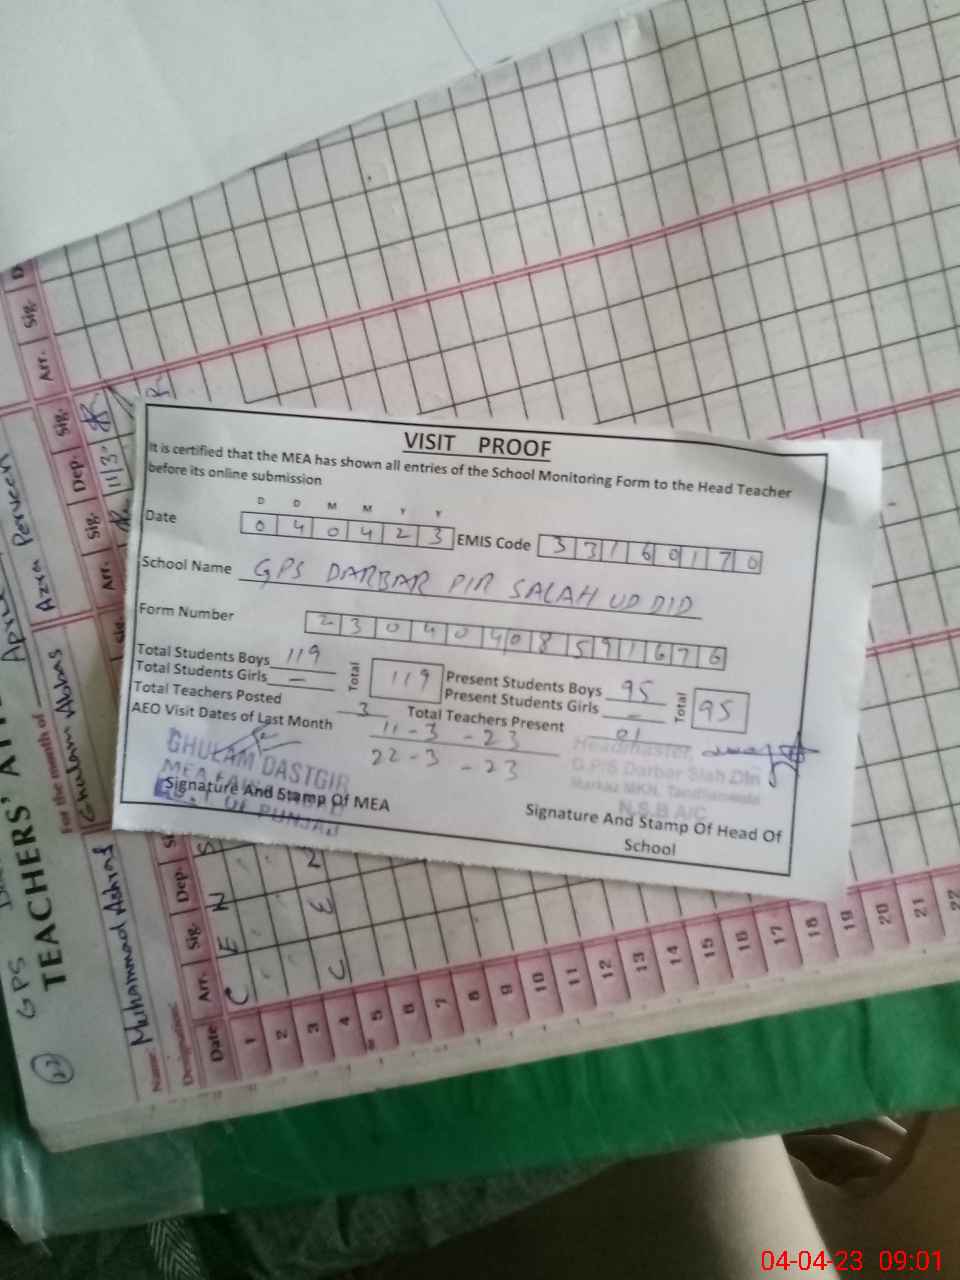 VISIT PROOF
It is certified that the MEA has shown all entries of the School Monitoring Form to the Head Teacher
before its online submission
D D M M Y Y
Date 0 4 0 4 2 3 EMIS Code 3 3 1 6 0 1 7 0
School Name GPS DARBAR PIR SALAH UD DID
Form Number 2 3 0 4 0 4 0 8 5 9 1 6 7 6
Total Students Boys 119 Total 119 Present Students Boys 95 Total 95
Total Students Girls – Present Students Girls –
Total Teachers Posted 3 Total Teachers Present 01
AEO Visit Dates of Last Month 11-3-23
22-3-23
GHULAM DASTGIR
MEA
OF PUNJAB
Signature And Stamp Of MEA
Headmaster,
G.P.S Darbar Slah Din
Markaz MKN, Tandlianwala
N.S.B A/C
Signature And Stamp Of Head Of
School
GPS
TEACHERS'
For the month of April
Name: Muhammad Ashraf
Ghulam Abbas
Azra Perveen
Date Arr. Sig. Dep.
Arr. Sig. Dep. Sig.
Arr. Sig.
1 2 3 4 5 6 7 8 9 10 11 12 13 14 15 16 17 18 19 20 21 22
04-04-23 09:01